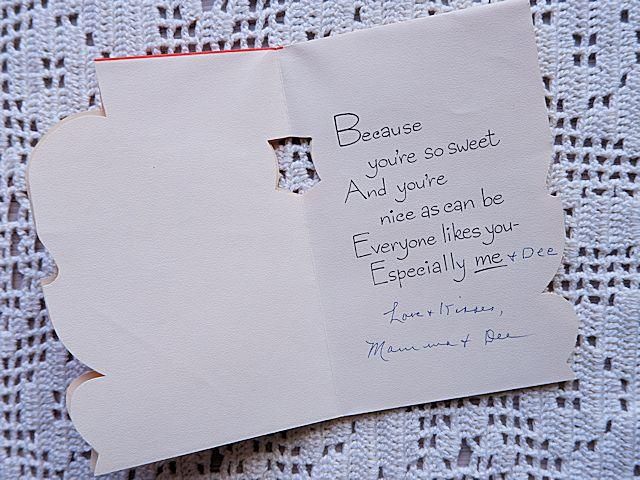 Because
you're so sweet
And you're
nice as can be
Everyone likes you-
Especially me + Dee
Love + Kisses,
Mamma + Dee